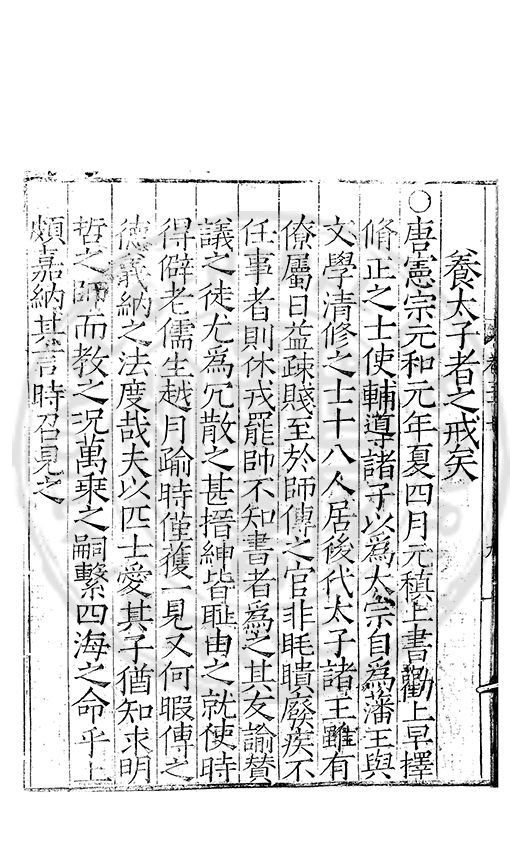 養太子者之戒矣
○唐憲宗元和元年夏四月元稹上書勸上早擇
脩正之士使輔導諸子以爲太宗自爲藩王與
文學清修之士十八人居後代太子諸王雖有
僚屬日益疎賤至於師傅之官非眊聵廢疾不
任事者則休戎罷帥不知書者爲之其友諭賛
議之徒尤爲冗散之甚搢紳皆恥由之就使時
得僻老儒生越月踰時僅獲一見又何暇傅之
德義納之法度哉夫以匹士愛其子猶知求明
哲之師而教之况萬乗之嗣繫四海之命乎上
頗嘉納其言時召見之